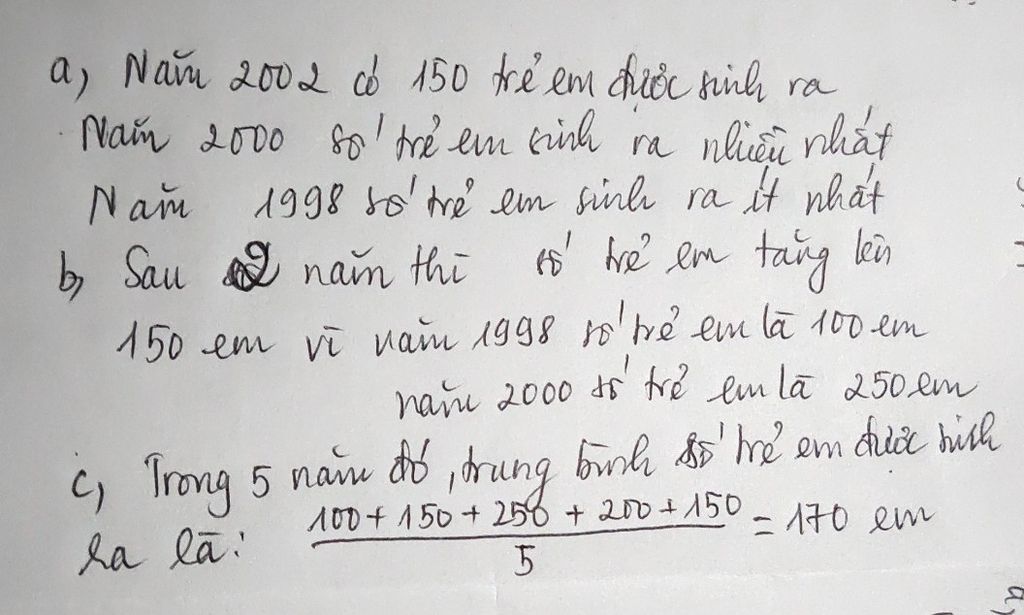 a, Năm 2002 có 150 trẻ em được sinh ra
Năm 2000 số trẻ em sinh ra nhiều nhất
Năm 1998 số trẻ em sinh ra ít nhất
b, Sau 2 năm thì số trẻ em tăng lên
150 em vì năm 1998 số trẻ em là 100 em
năm 2000 số trẻ em là 250 em
c, Trong 5 năm đó, trung bình số trẻ em được sinh
ra là: 100 + 150 + 250 + 200 + 150 = 170 em
5